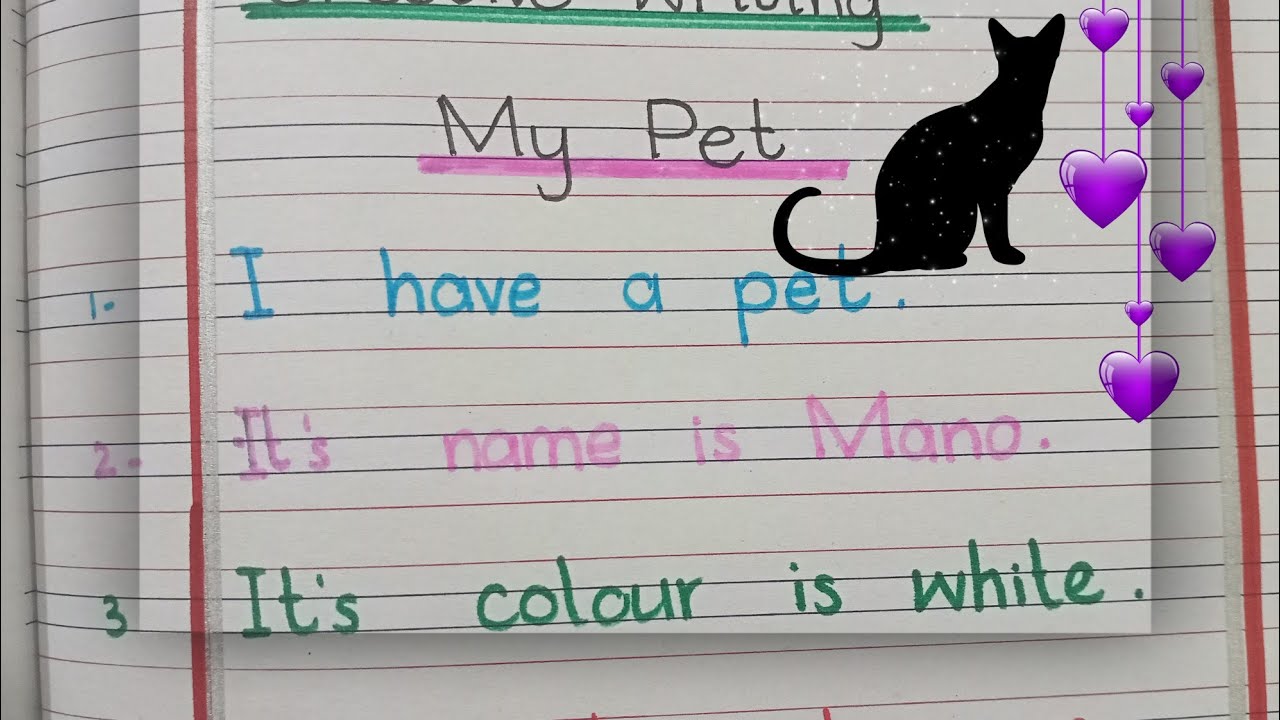 Creative Writing
My Pet
1. I have a pet.
2. It's name is Mano.
3 It's colour is white.